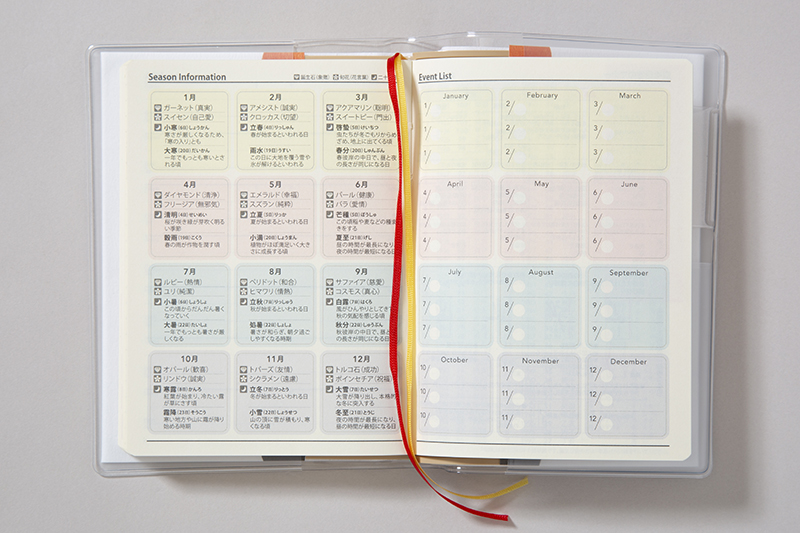 Season Information
誕生石(象徴) 知花(花言葉) 二十
1月
ガーネット(真実)
スイセン(自己愛)
小寒(6日)しょうかん
寒さが厳しくなるため、
「寒の入り」とも
大寒(20日)だいかん
一年でもっとも寒いとさ
れる頃
2月
アメシスト(誠実)
クロッカス(切望)
立春(4日)りっしゅん
春が始まるといわれる日
雨水(19日)うすい
この日に大地を覆う雪や
氷が解けるといわれる
3月
アクアマリン(聡明)
スイートピー(門出)
啓蟄(5日)けいちつ
虫たちが冬ごもりからめ
ざめ、地上に出てくる頃
春分(20日)しゅんぶん
春彼岸の中日で、昼と夜
の長さが同じになる日
4月
ダイヤモンド(清浄)
フリージア(無邪気)
清明(4日)せいめい
桜が咲き緑が芽吹く明る
い季節
穀雨(19日)こくう
春の雨が作物を潤す頃
5月
エメラルド(幸福)
スズラン(純粋)
立夏(5日)りっか
夏が始まるといわれる日
小満(20日)しょうまん
植物がほぼ満足いく大き
さに成長する頃
6月
パール(健康)
バラ(愛情)
芒種(5日)ぼうしゅ
この頃稲や麦などの種ま
きをする
夏至(21日)げし
昼の時間が最長になり、
夜の時間が最短になる日
7月
ルビー(熱情)
ユリ(純潔)
小暑(6日)しょうしょ
この頃からだんだん暑く
なっていく
大暑(22日)たいしょ
一年でもっとも暑さが厳
しくなる
8月
ペリドット(和合)
ヒマワリ(情熱)
立秋(7日)りっしゅう
秋が始まるといわれる日
処暑(22日)しょしょ
暑さが和らぎ、朝夕過ご
しやすくなる時期
9月
サファイア(慈愛)
コスモス(真心)
白露(7日)はくろ
風がひんやりとしてき
秋の気配を感じる頃
秋分(22日)しゅうぶん
秋彼岸の中日で、昼と
の長さが同じになる日
10月
オパール(歓喜)
リンドウ(誠実)
寒露(8日)かんろ
紅葉が始まり、冷たい露
が草にさす頃
霜降(23日)そうこう
寒い地方や山に霜が降り
始める時期
11月
トパーズ(友情)
シクラメン(遠慮)
立冬(7日)りっとう
冬が始まるといわれる日
小雪(22日)しょうせつ
山の頂に雪が積もり、寒
くなる頃
12月
トルコ石(成功)
ポインセチア(祝福)
大雪(7日)たいせつ
大雪が降り出し、本格的
な冬に突入する
冬至(21日)とうじ
夜の時間が最長になり、
昼の時間が最短になる日
Event List
January
1/
1/
1/
February
2/
2/
2/
March
3/
3/
3/
April
4/
4/
4/
May
5/
5/
5/
June
6/
6/
6/
July
7/
7/
7/
August
8/
8/
8/
September
9/
9/
9/
October
10/
10/
10/
November
11/
11/
11/
December
12/
12/
12/